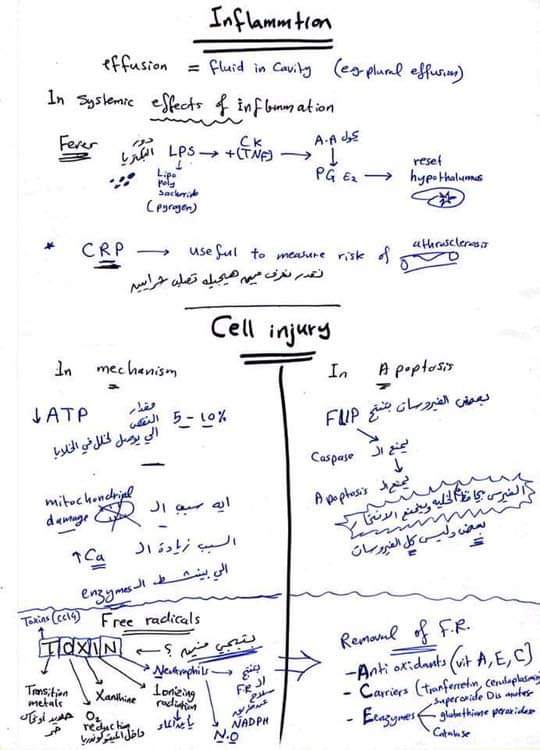 Inflammtion
effusion = fluid in cavity (e.g plural effusion)
In Systemic effects of inflammation
Fever
دور البكتريا LPS → + CK (TNF) → A.A
Lipo
Poly
Saccharide
(pyrogen)
PG E2 → reset
hypothalumus
* CRP → useful to measure risk of athrosclerosis
نقدر نعرف مين هيجيله تصلب شرايين
Cell injury
In mechanism
↓ATP مقدار النقص 5 - 10%
الي يوصل لخلل في الخلايا
mitochondrial
damage ايه سبب الـ
↑Ca السبب زيادة الـ
enzymes الي بينشط الـ
In Apoptosis
بعض الفيروسات بتنتج
FLIP
Caspase يمنع الـ
Apoptosis يمنع الـ
الفيرس يحافظ الخلية ويمنع الانتحار
بعض وليس كل الفيروسات
Toxins (ccl4)
Free radicals
TOXIN ← بتيجي منين ؟
Transition
metals
حديد أو نحاس
حر
O2
reducting
داخل الميتوكوندريا
Xanthine
Ionizing
radiation
Neutrophils
بتنتج
الـ F.R
سلاح
عن طريق
NADPH
N.O
Removal of F.R.
- Anti oxidants (vit A, E, C)
- Carriers (Tranferretin, ceruloplasmin)
- Enzymes
Superoxide Dismutase
glutathione peroxidase
Catalase